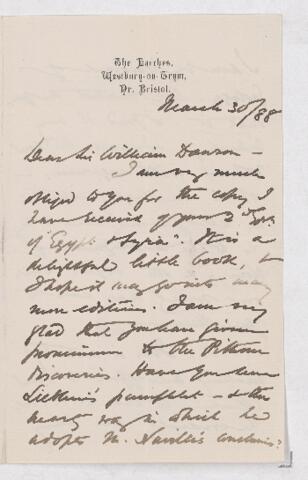 The Larches,
Westbury-on-Trym,
Nr. Bristol.
March 30/88
Dear Sir William Dawson –
I am very much
obliged to you for the copy I
have received of your
of Egypt & Syria". It is a
delightful little book, &
I hope it may go into many
more editions. I am very
glad that you have given
prominence to the Pithom
discoveries. Have you seen
pamphlet – & the
hearty way in which he
adopts M. Naville's conclusions?